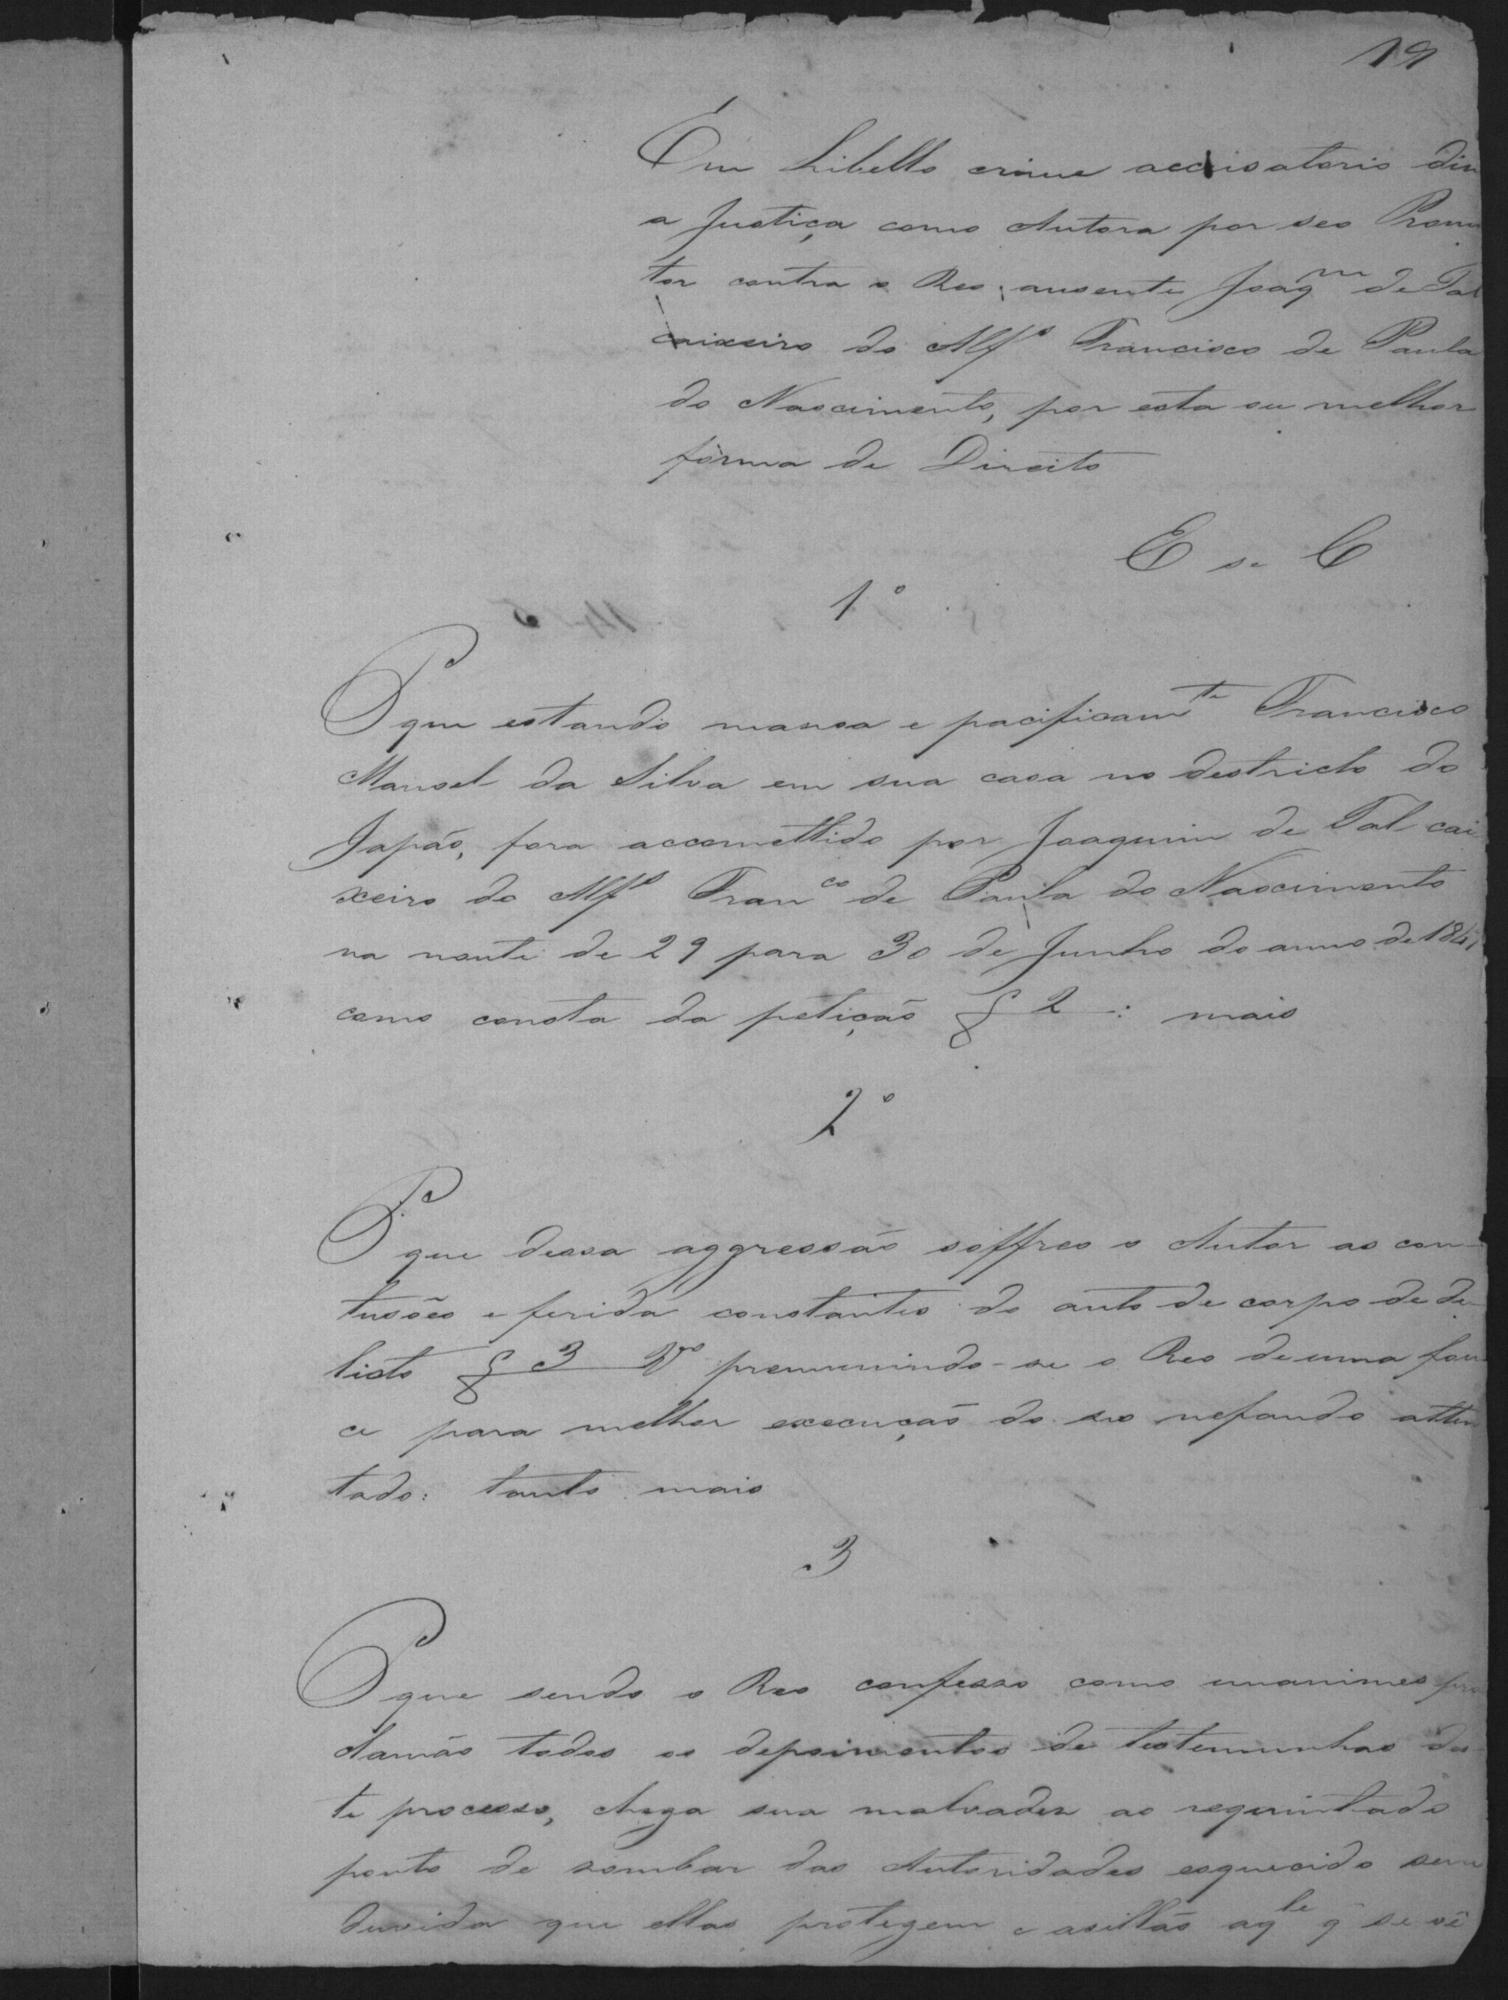 19
Em Libello crime accusatorio diz
a Justiça como Autora por seo Promo
tor contra o Reo ausente Joaqm de Tal
caixeiro do Alfs Francisco de Paula
do Nascimento, por esta ou melhor
forma de Direito
E se C
1º
P que estando mansa e pacificamte Francisco
Manoel da Silva em sua casa no destricto do
Japão, fora accomettido por Joaquim de Tal cai
xeiro do Alfs Franco de Paula do Nascimento
na noute de 29 para 30 de Junho do anno de
como consta da petição f 2 : mais
2º
P que dessa aggressão soffreo o Autor as con-
tusões e ferida constantes do auto de corpo de de-
licto f 3 Vo premunindo-se o Reo de uma fou
ce para melhor execução do seo nefando atten
tado: tanto mais
3
P que sendo o Reo confesso como unanimes pro
clamão todos os depoimentos de testemunhas des
te processo, chega sua malvadez ao requintado
ponto de zombar das Autoridades esquecido sem
duvida que ellas protegem e asillão aqle q̃ se vê